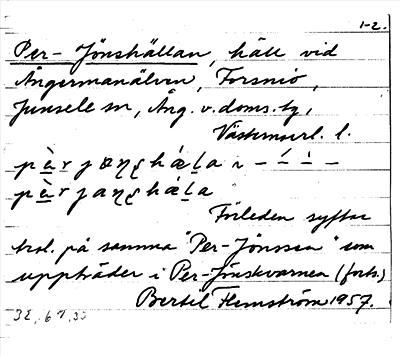 1-2.
Per-Jönshällan, häll vid
Ångermanälven, Forsmo,
Junsele sn, Ång. v. doms. tg,
Västernorrl. l.
pèr jöns hál̲a ~ – –́ –̀ –
pèr jans hál̲a
Förleden syftar
trol. på samma "Per-Jönssen" som
uppträder i Per-Jönskvarnen (forts.)
Bertil Flemström 1957.